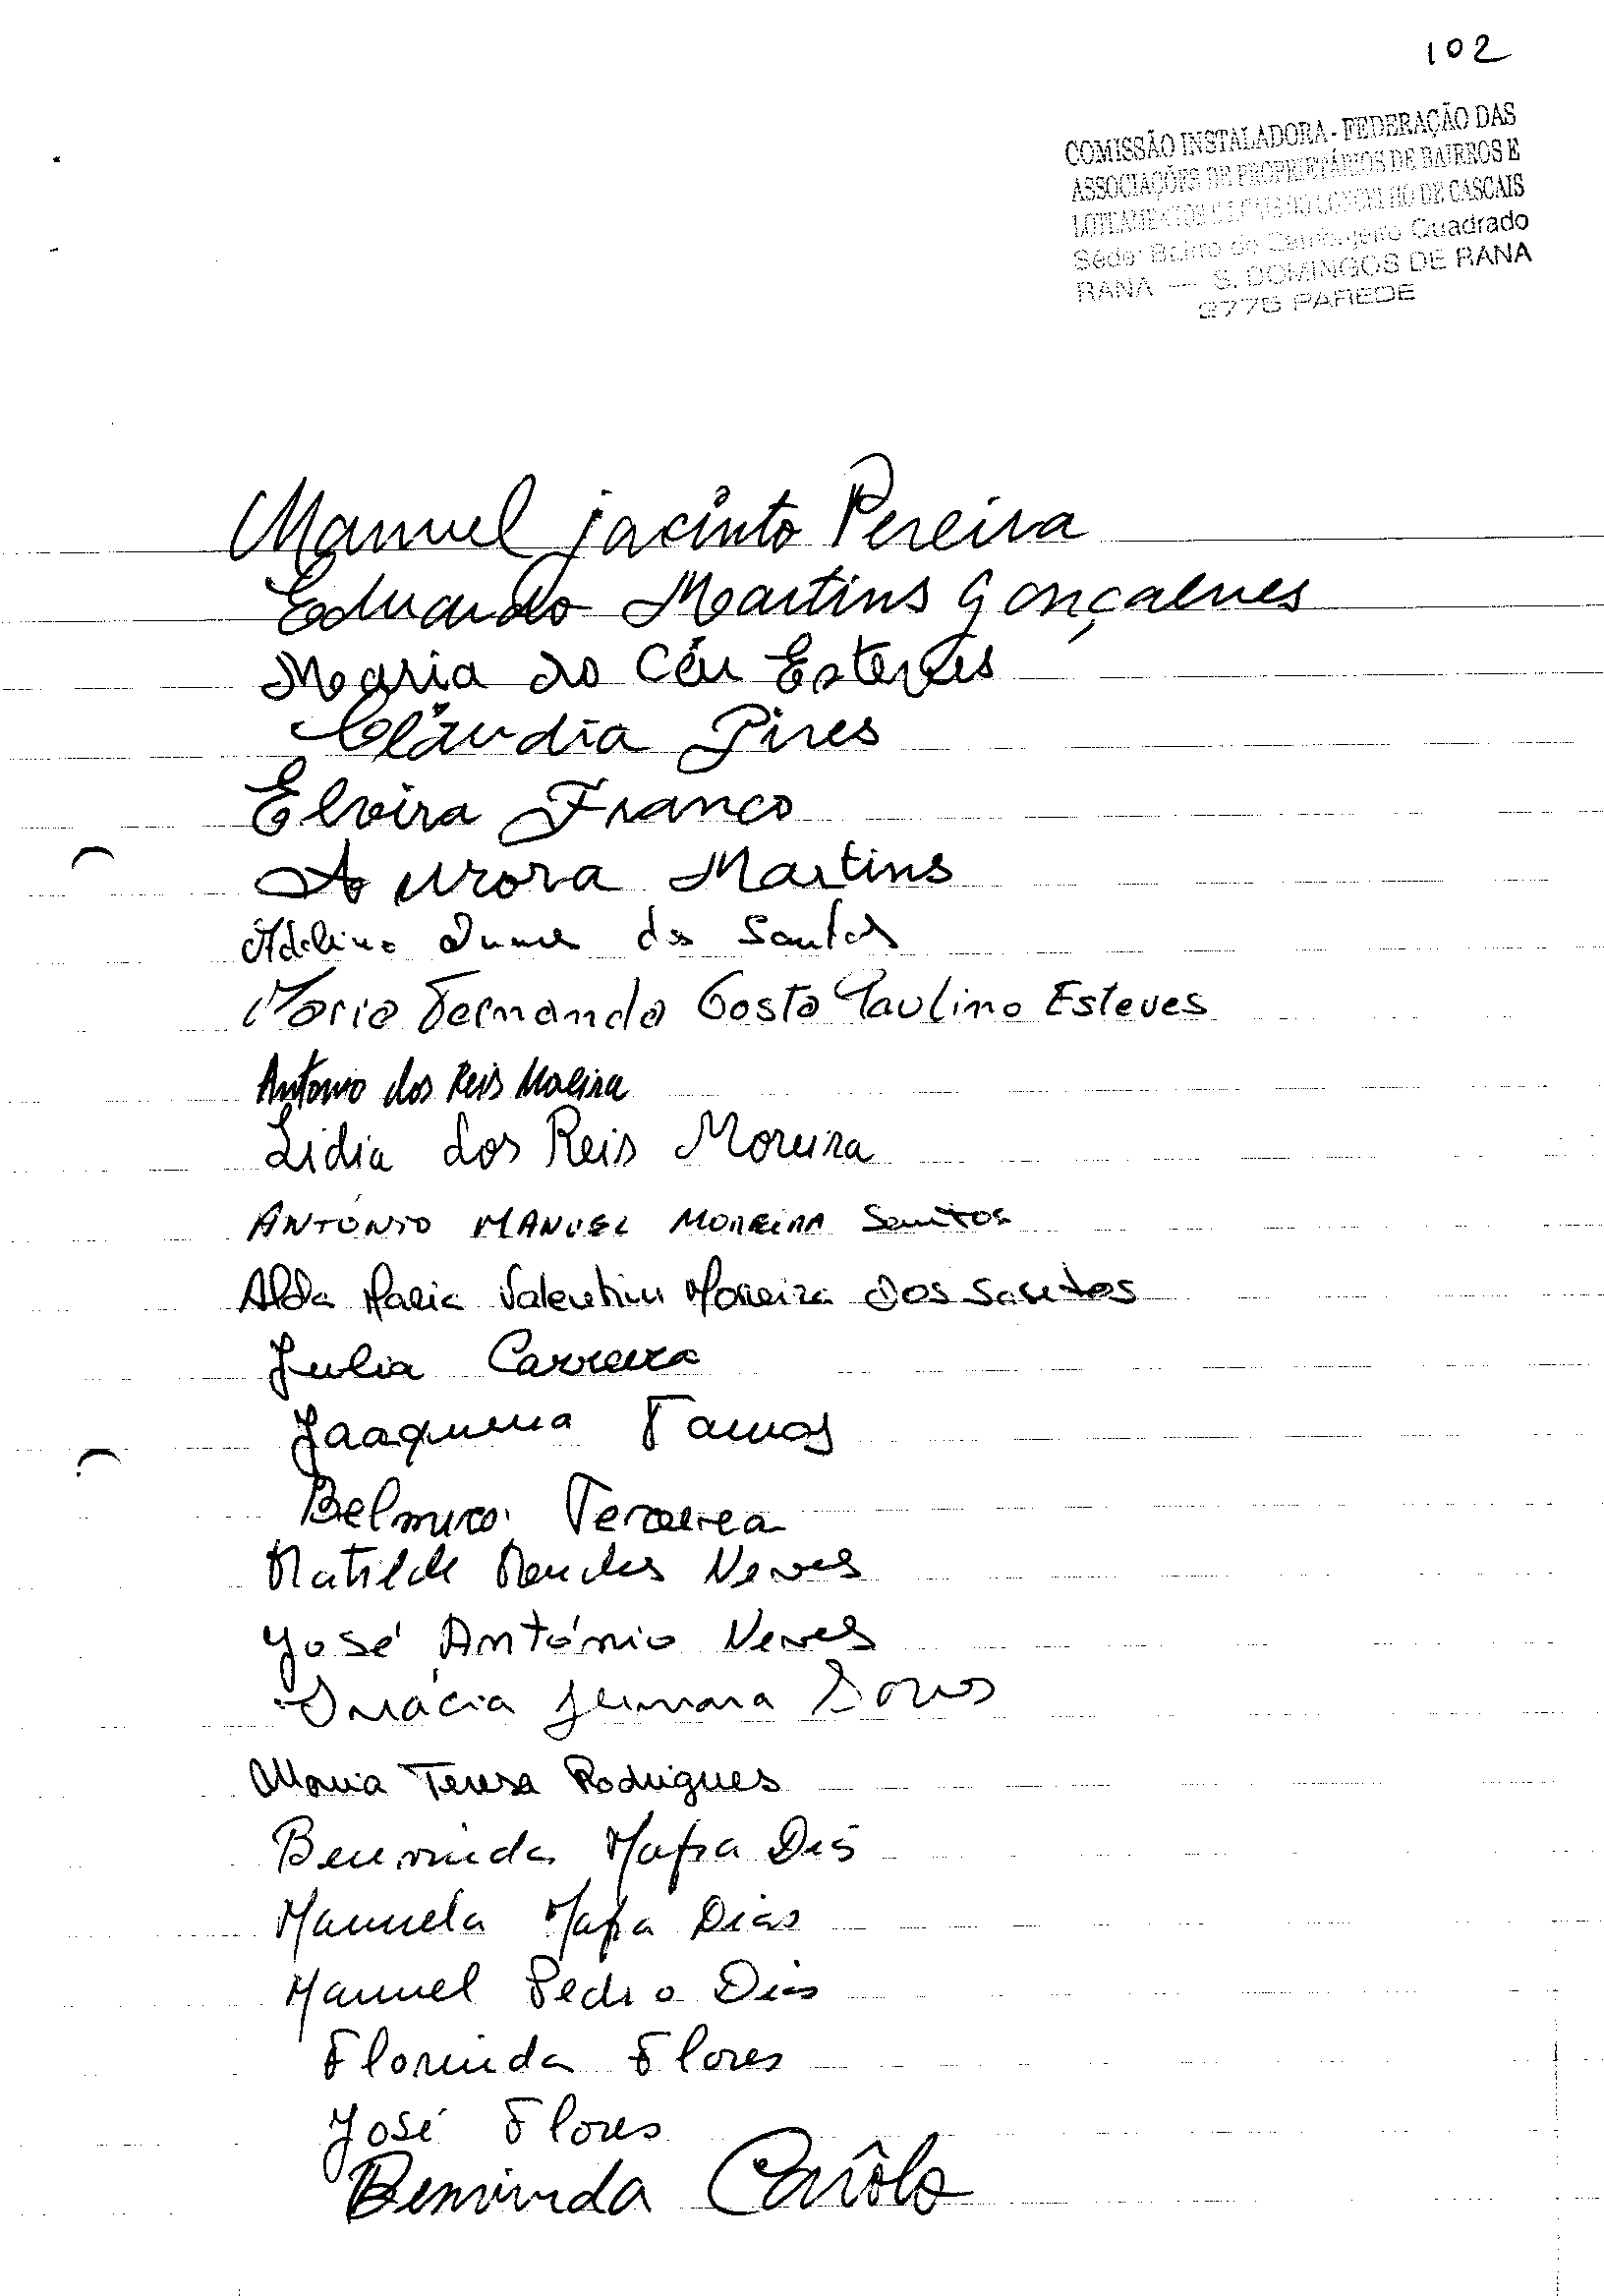 102
COMISSÃO INSTALADORA - FEDERAÇÃO DAS
ASSOCIAÇÕES DE PROPRIETÁRIOS DE BAIRROS E
LOTEAMENTOS CONCELHO DE CASCAIS
Séde: Bairro do Quadrado
RANA — S. DOMINGOS DE RANA
2775 PAREDE
Manuel jacinto Pereira
Eduardo Martins Gonçalves
Maria do Céu Esteves
Cláudia Pires
Elvira Franco
Aurora Martins
Adelino dos Santos
Maria Fernanda Costa Paulino Esteves
Antonio dos Reis Moreira
Lidia dos Reis Moreira
ANTÓNIO MANUEL MOREIRA Santos
Alda Maria Valentim Moreira dos Santos
Julia Carreira
Belmiro
Matilde Mendes Neves
José António Neves
Inácia
Maria Teresa Rodrigues
Benvinda Mafra Dias
Manuela Mafra Dias
Manuel Pedro Dias
Florinda Flores
José Flores
Benvinda